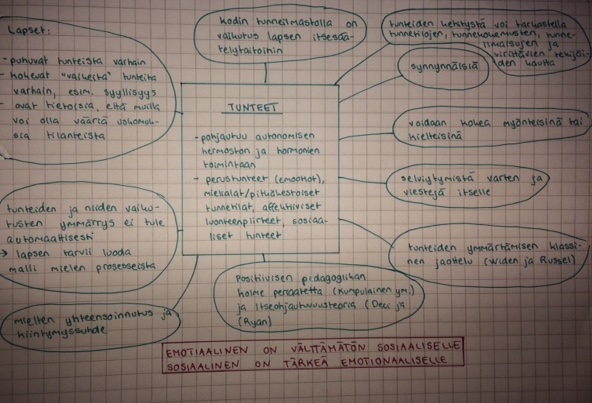 Lapset:
- puhuvat tunteista varhain
- kokevat "vaikeita" tunteita
varhain, esim. syyllisyys
- ovat tietoisia, että muilla
voi olla vääriä uskomuk-
sia tilanteista
kodin tunneilmastolla on
vaikutus lapsen itsesää-
telytaitoihin
tunteiden kehitystä voi tarkastella
tunnetilojen, tunnekokemusten, tunne-
ilmaisujen ja
virittävien tekijöi-
den kautta
synnynnäisiä
TUNTEET
- pohjautuu autonomisen
hermoston ja hormonien
toimintaan
- perustunteet (emootiot),
mielialat/pitkäkestoiset
tunnetilat, affektiiviset
luonteenpiirteet, sosiaa-
liset tunteet
voidaan kokea myönteisinä tai
kielteisinä
selviytymistä varten ja
viestejä itselle
tunteiden ja niiden vaiku-
tusten ymmärrys ei tule
automaattisesti
→ lapsen tarvii luoda
malli mielen prosesseista
tunteiden ymmärtämisen klassi-
nen jaottelu (Widen ja Russel)
Positiivisen pedagogiikan
kolme periaatetta (Kumpulainen ym.)
ja itseohjautuvuusteoria (Deci ja
Ryan)
mielten yhteensoinnutus ja
kiintymyssuhde
EMOTIAALINEN ON VÄLTTÄMÄTÖN SOSIAALISELLE
SOSIAALINEN ON TÄRKEÄ EMOTIONAALISELLE